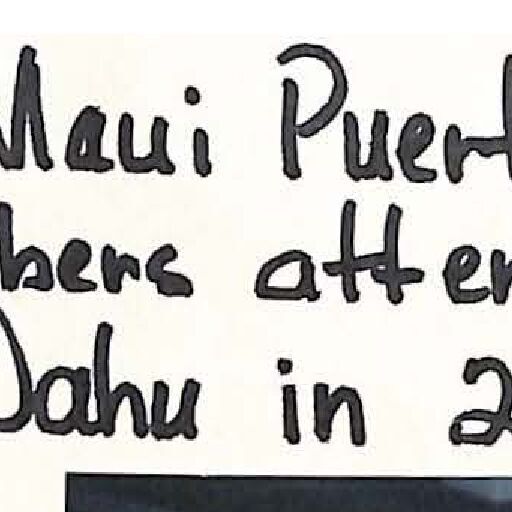 Maui Puert
bers atten
Oahu in 2